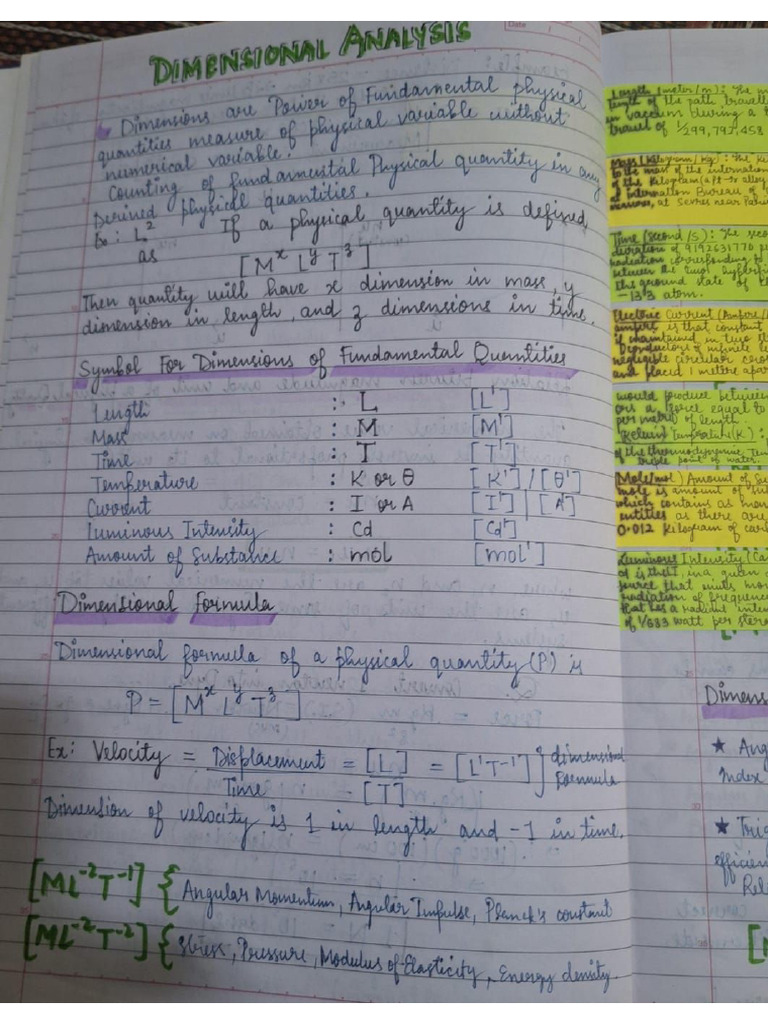 DIMENSIONAL ANALYSIS
Date
Dimensions are Power of Fundamental physical
quantities measure of physical variable without
numerical variable.
Counting of fundamental Physical quantity in any
Derived physical quantities.
Ex: L² If a physical quantity is defined
as [Mˣ Lʸ Tᶻ]
Then quantity will have x dimension in mass, y
dimension in length, and z dimensions in time.
Symbol For Dimensions of Fundamental Quantities
Length : L [L¹]
Mass : M [M¹]
Time : T [T¹]
Temperature : K or θ [K¹] / [θ¹]
Current : I or A [I¹] | [A¹]
Luminous Intensity : Cd [Cd¹]
Amount of Substance : mol [mol¹]
Dimensional Formula
Dimensional formula of a physical quantity (P) is
P = [Mˣ Lʸ Tᶻ]
Ex: Velocity = Displacement / Time = [L] / [T] = [L¹T⁻¹] } dimensional formula
Dimension of velocity is 1 in length and -1 in time.
[ML⁻²T⁻¹] { Angular Momentum, Angular Impulse, Planck's constant
[ML⁻²T⁻²] { Stress, Pressure, Modulus of Elasticity, Energy density.
Length (meter/m): The
length of the path travelle
in vaccum during a t
travel of 1/299,792,458
Mass (Kilogram/kg): The
to the mass of the internation
of the Kilogram (a Pt-Ir alloy
at International Bureau of
at Sevres near Paris
Time (second/s): The seco
duration of 9192631770 pe
radiation corresponding to
between the two hyperfin
the ground state of
-133 atom.
Electric Current (Ampere/
ampere is that constant
if maintained in two st
conductors of infinite le
negligible circular cross
and placed 1 metre apar
would produce between
ors a force equal to
per metre of length.
Kelvin Temperature (K):
of the thermodynamic tem
of triple point of water.
Mole (mol) Amount of Su
mole is amount of sub
which contains as man
entities as there are
0.012 Kilogram of car
Luminous Intensity (Ca
cd is the I, in a given
source that emits mon
radiation of frequence
that has a radiant inten
of 1/683 watt per stera
Dimens
★ Ang
Index
★ Trig
efficien
Rel